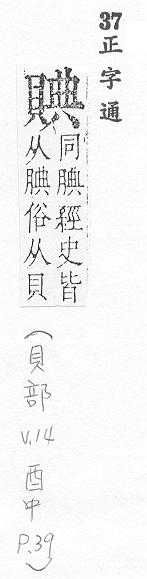 37正字通
賟
同腆經史皆
从腆俗从貝
(貝部 V.14 酉中 P.39)